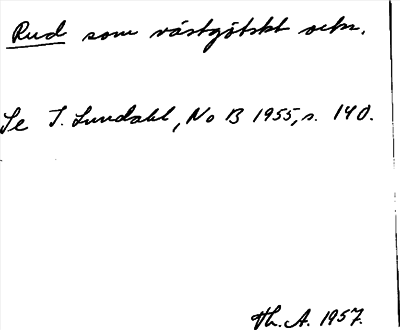 Rud som västgötskt ortn.
Se I. Lundahl, NoB 1955, s. 140.
Th. A. 1957.